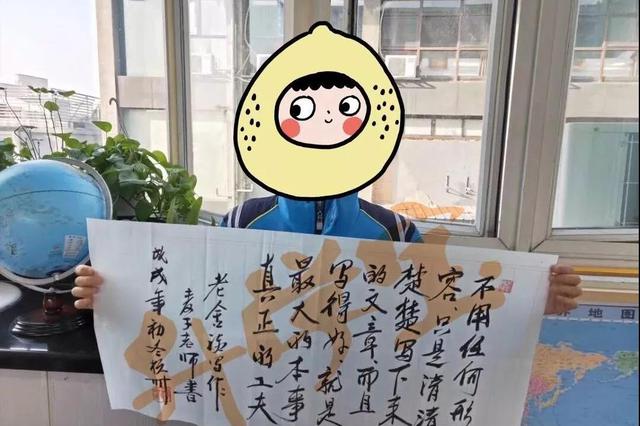 不用任何形
容，只是清清
楚楚写下来
的文章而且
写得好就是
最大的本事
真正的工夫
老金写作
麦子老师书
戊戌年初冬
界地图